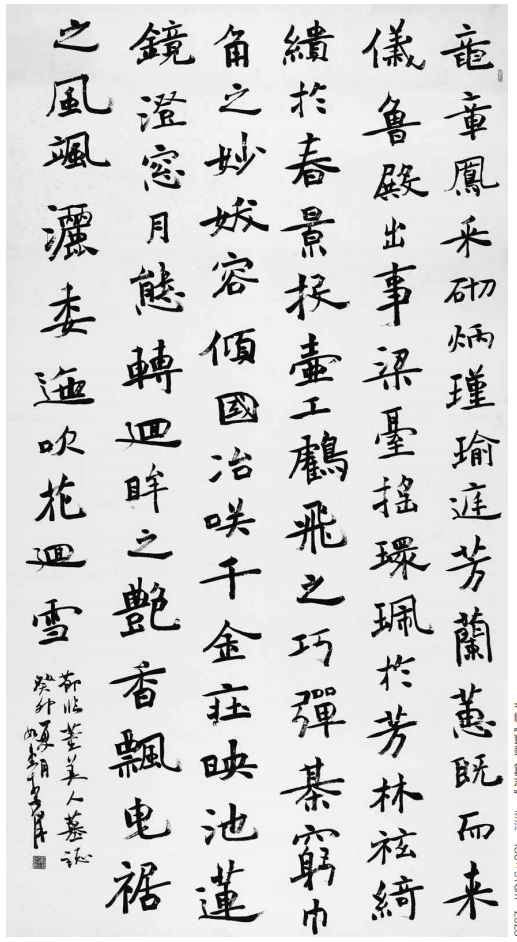 龍章鳳采砌炳瑾瑜庭芳蘭蕙既而来
儀魯殿出事梁臺搖環珮於芳林袨綺
繢於春景投壺工鶴飛之巧彈棊窮巾
角之妙妖容傾國冶咲千金莊映池蓮
鏡澄窓月態轉迴眸之艷香飄曳裾
之風颯灑委迤吹花迴雪
節臨董美人墓誌
癸卯夏月